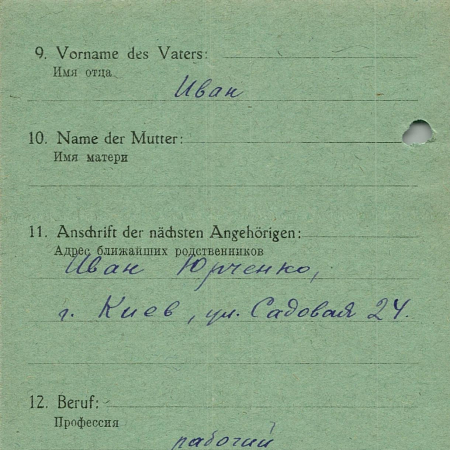 9. Vorname des Vaters:
Имя отца
Иван
10. Name der Mutter:
Имя матери
11. Anschrift der nächsten Angehörigen:
Адрес ближайших родственников
Иван Юрченко,
г. Киев, ул. Садовая 24.
12. Beruf:
Профессия
рабочий